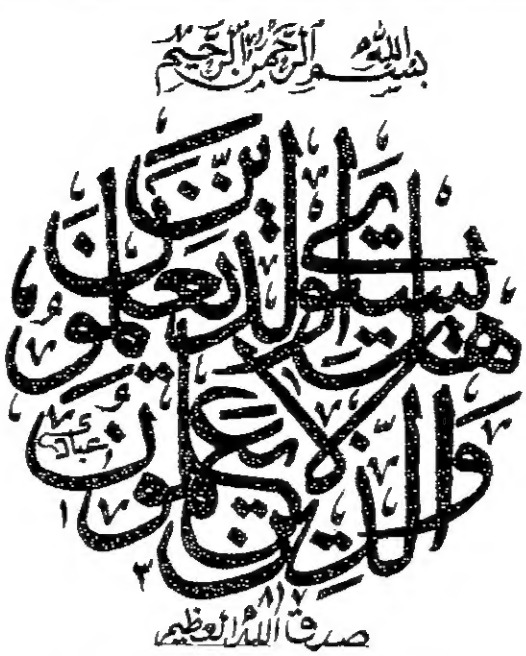 بسم الله الرحمن الرحيم
هل يستوي الذين يعلمون
والذين لا يعلمون
صدق الله العظيم